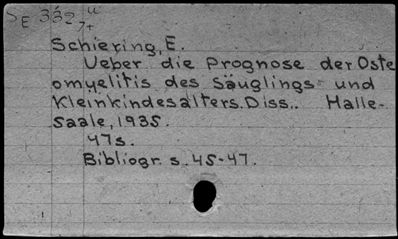 Schiering, E.
Ueber die Prognose der Oste
omyelitis des Säuglings- und
Kleinkindesalters. Diss.. Halle-
Saale, 1935.
47s.
Bibliogr. s. 45-47.